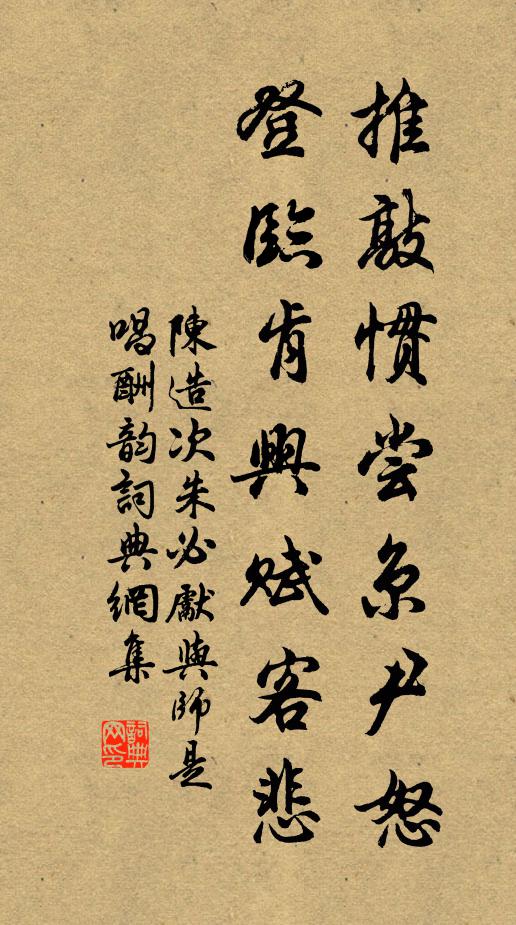 推敲慣嘗京尹怒
登臨肯興賦客悲
陳造次朱必獻與師是
唱酬韵詞典網集
詞典网印